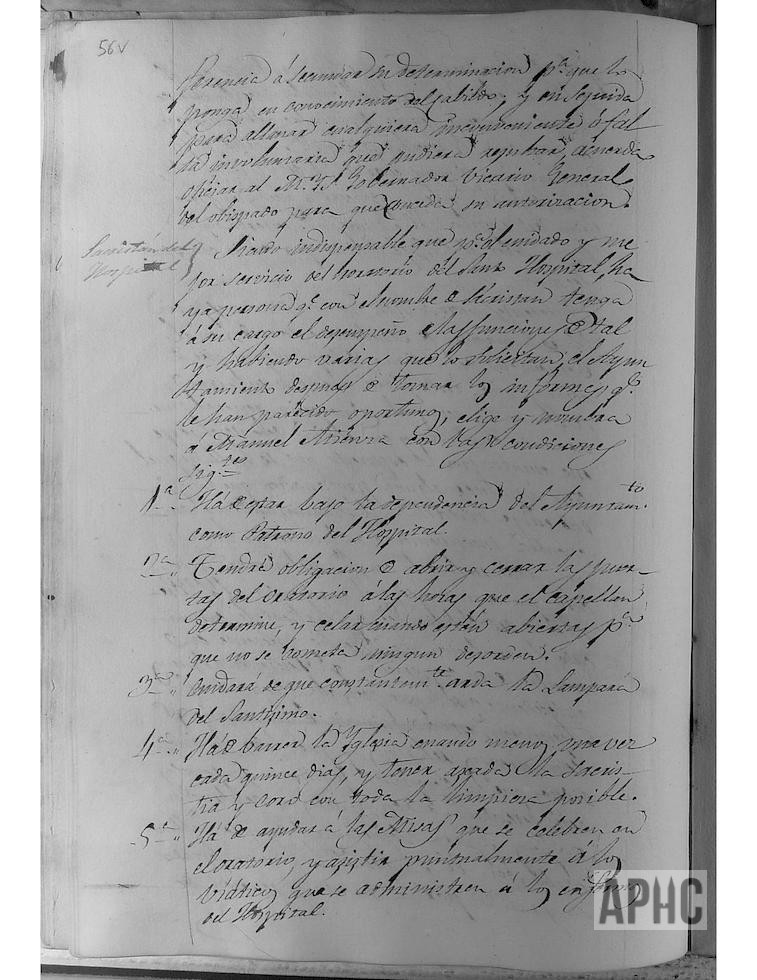 56v
ferencia á secundar su determinacion pª. que lo
ponga en conocimiento del Cabildo, y en seguida
para allanar cualquiera inconveniente ó fal
ta involuntaria que pudiera reputar, acuerda
oficiar al M. Y. S. Gobernador Vicario General
del obispado para que conceda su autorizacion.
Sacristán del
Hospital
Siendo indispensable que pª. el cuidado y me
jor servicio del horatorio del Santo Hospital, ha
ya persona qᵉ. con el nombre de Sacristan tenga
á su cargo el desempeño de las funciones de tal
y habiendo varias que lo solicitan, el Ayun
tamiento despues de tomar los informes qᵉ.
le han parecido oportunos, elige y nombra
á Manuel con las condiciones
sigᵗᵉˢ
1ª. Há de estar bajo la dependencia del Ayuntamᵗᵒ.
como Patrono del Hospital.
2ª. Tendrá obligacion de abrir y cerrar las puer-
tas del oratorio á las horas que el capellan
determine, y celar cuando están abiertas pª.
que no se cometa ningun desorden.
3ª. Cuidará de que constantemᵗᵉ. arda la Lampara
del Santisimo.
4ª. Há de barrer la Yglesia cuando menos una vez
cada quince dias, y tener aseada la Sacris-
tia y coro con toda la limpieza posible.
5ª. Há de ayudar á las Misas que se celebren en
el oratorio, y asistir puntualmente á los
Viaticos que se administren á los enfermos
del Hospital.
APHC